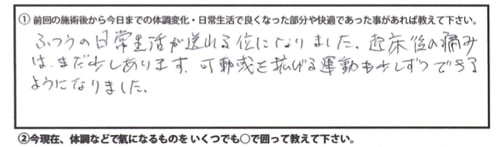 ①前回の施術後から今日までの体調変化・日常生活で良くなった部分や快適であった事があれば教えて下さい。
ふつうの日常生活が送れる位になりました。起床後の痛み
は、まだ少しあります。可動域を拡げる運動も少しずつできる
ようになりました。
②今現在、体調などで氣になるものをいくつでも○で囲って教えて下さい。